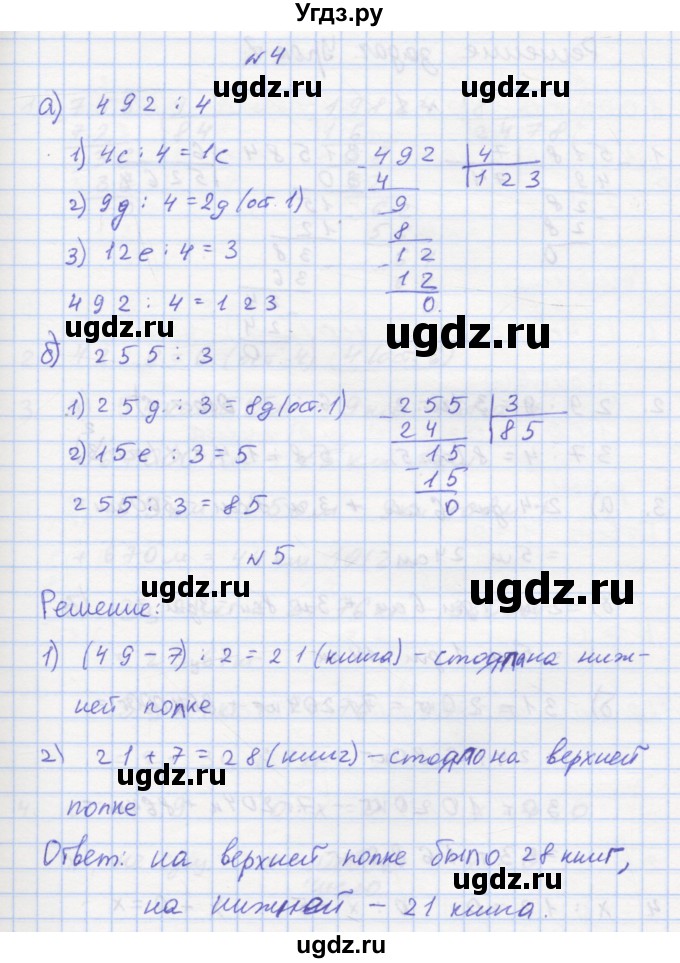 Угдз.ру
№4
а) 492 : 4
1) 4с : 4 = 1с
492 | 4
4 123
2) 9д : 4 = 2д (ост. 1)
9
8
3) 12е : 4 = 3
12
12
0
492 : 4 = 123
б) 255 : 3
1) 25д : 3 = 8д (ост. 1)
255 | 3
24 85
2) 15е : 3 = 5
15
15
0
255 : 3 = 85
№5
Решение:
1) (49 – 7) : 2 = 21 (книга) – стояла на ниж-
ней полке
2) 21 + 7 = 28 (книг) – стояло на верхней
полке
Ответ: на верхней полке было 28 книг,
на нижней – 21 книга.
ugdz.ru
ugdz.ru
ugdz.ru
ugdz.ru
ugdz.ru
ugdz.ru
ugdz.ru
ugdz.ru
ugdz.ru
ugdz.ru
ugdz.ru
ugdz.ru
ugdz.ru